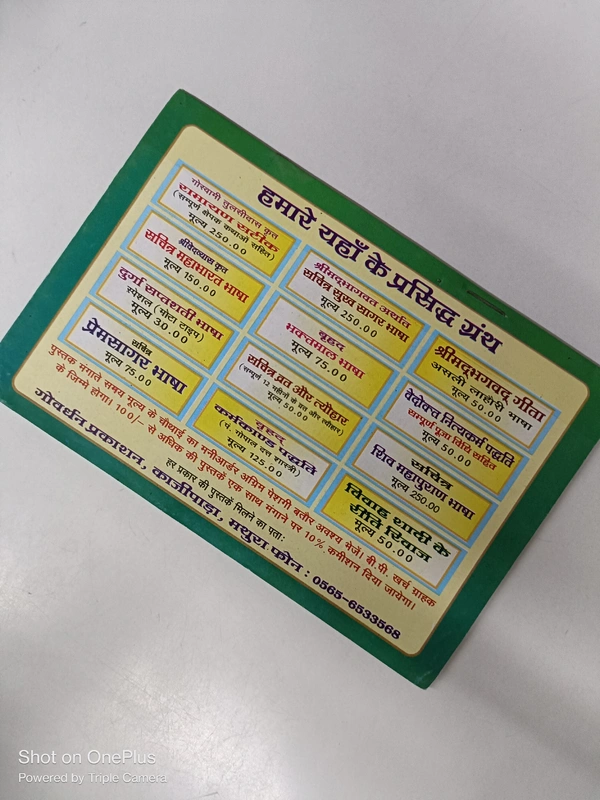 हमारे यहाँ के प्रसिद्ध ग्रंथ
गोस्वामी तुलसीदास कृत
रामायण सटीक
(सम्पूर्ण क्षेपक कथाओं सहित)
मूल्य 250.00
श्रीमद्‌भागवत अर्थात
सचित्र सुख सागर भाषा
मूल्य 250.00
श्रीमद्‌भगवद् गीता
असली लाहौरी भाषा
मूल्य 50.00
श्रीवेदव्यास कृत
सचित्र महाभारत भाषा
मूल्य 150.00
बृहद्
भक्तमाल भाषा
मूल्य 75.00
वेदोक्त नित्यकर्म पद्धति
सम्पूर्ण पूजा विधि सहित
मूल्य 50.00
दुर्गा सप्तशती भाषा
स्पेशल (मोटा टाइप)
मूल्य 30.00
सचित्र व्रत और त्यौहार
(सम्पूर्ण 12 महीनों के व्रत और त्यौहार)
मूल्य 50.00
सचित्र
शिव महापुराण भाषा
मूल्य 250.00
सचित्र
प्रेमसागर भाषा
मूल्य 75.00
बृहद्
कर्मकाण्ड पद्धति
(पं. गोपाल दत्त शास्त्री)
मूल्य 125.00
विवाह शादी के
रीति रिवाज
मूल्य 50.00
पुस्तक मंगाते समय मूल्य के चौथाई का मनीआर्डर अग्रिम पेशगी बतौर अवश्य भेजें। बी.पी. खर्च ग्राहक
के जिम्मे होगा। 100/- से अधिक की पुस्तकें एक साथ मंगाने पर 10% कमीशन दिया जायेगा।
हर प्रकार की पुस्तकें मिलने का पता:
गोवर्धन प्रकाशन, काजीपाड़ा, मथुरा फोन : 0565-6533568
Shot on OnePlus
Powered by Triple Camera